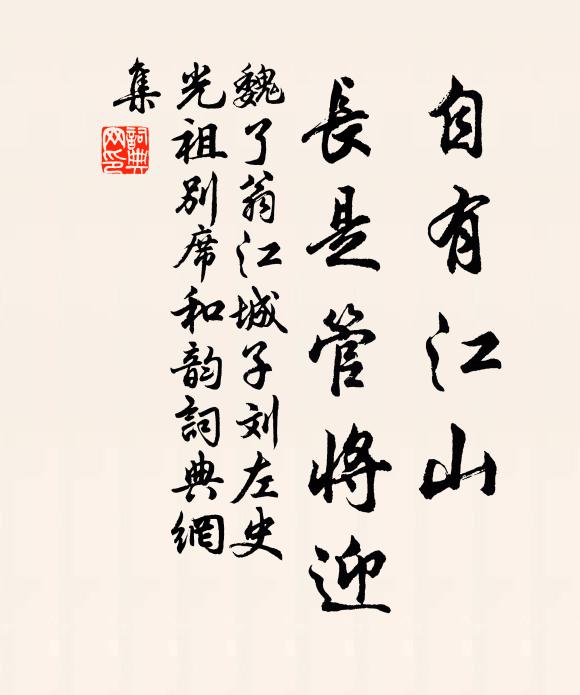 自有江山
長是管將迎
魏了翁江城子刘左史
光祖别席和韵詞典網
集
詞典
网印